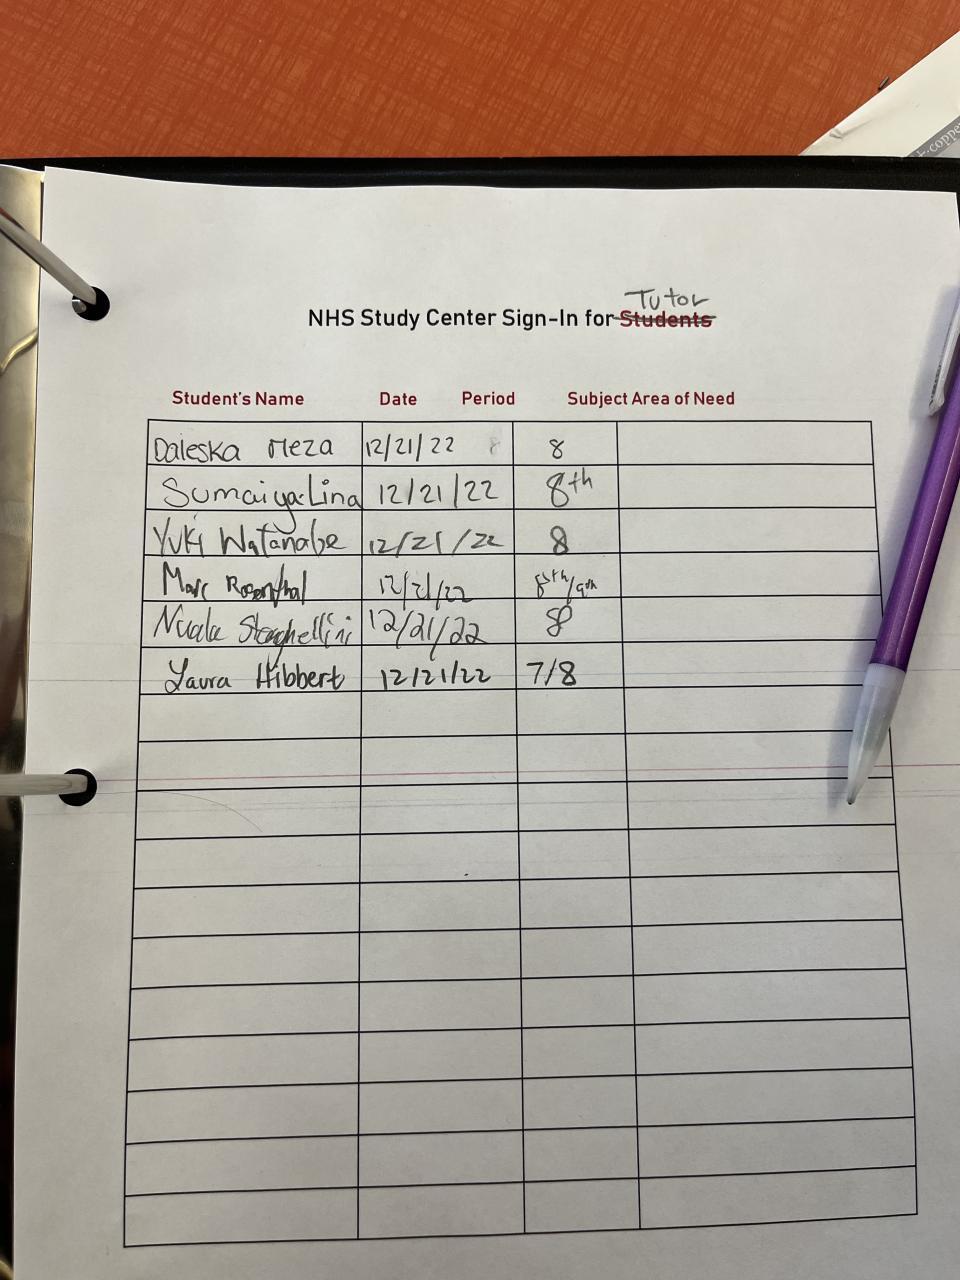 t.coppe
Tutor
NHS Study Center Sign-In for Students
Student's Name Date Period Subject Area of Need
Daleska Meza 12/21/22 8 8
Sumaiya Lina 12/21/22 8th
Yuki Watanabe 12/21/22 8
Marc Rosenthal 12/21/22 8th/9th
Nuala 12/21/22 8
Laura Hibbert 12/21/22 7/8